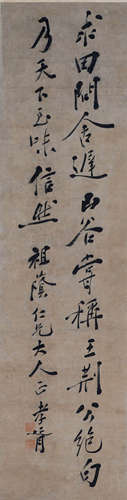 求田問舍遲山谷嘗稱王荊公絶句
乃天下至味信然 祖蔭仁兄大人正 孝胥